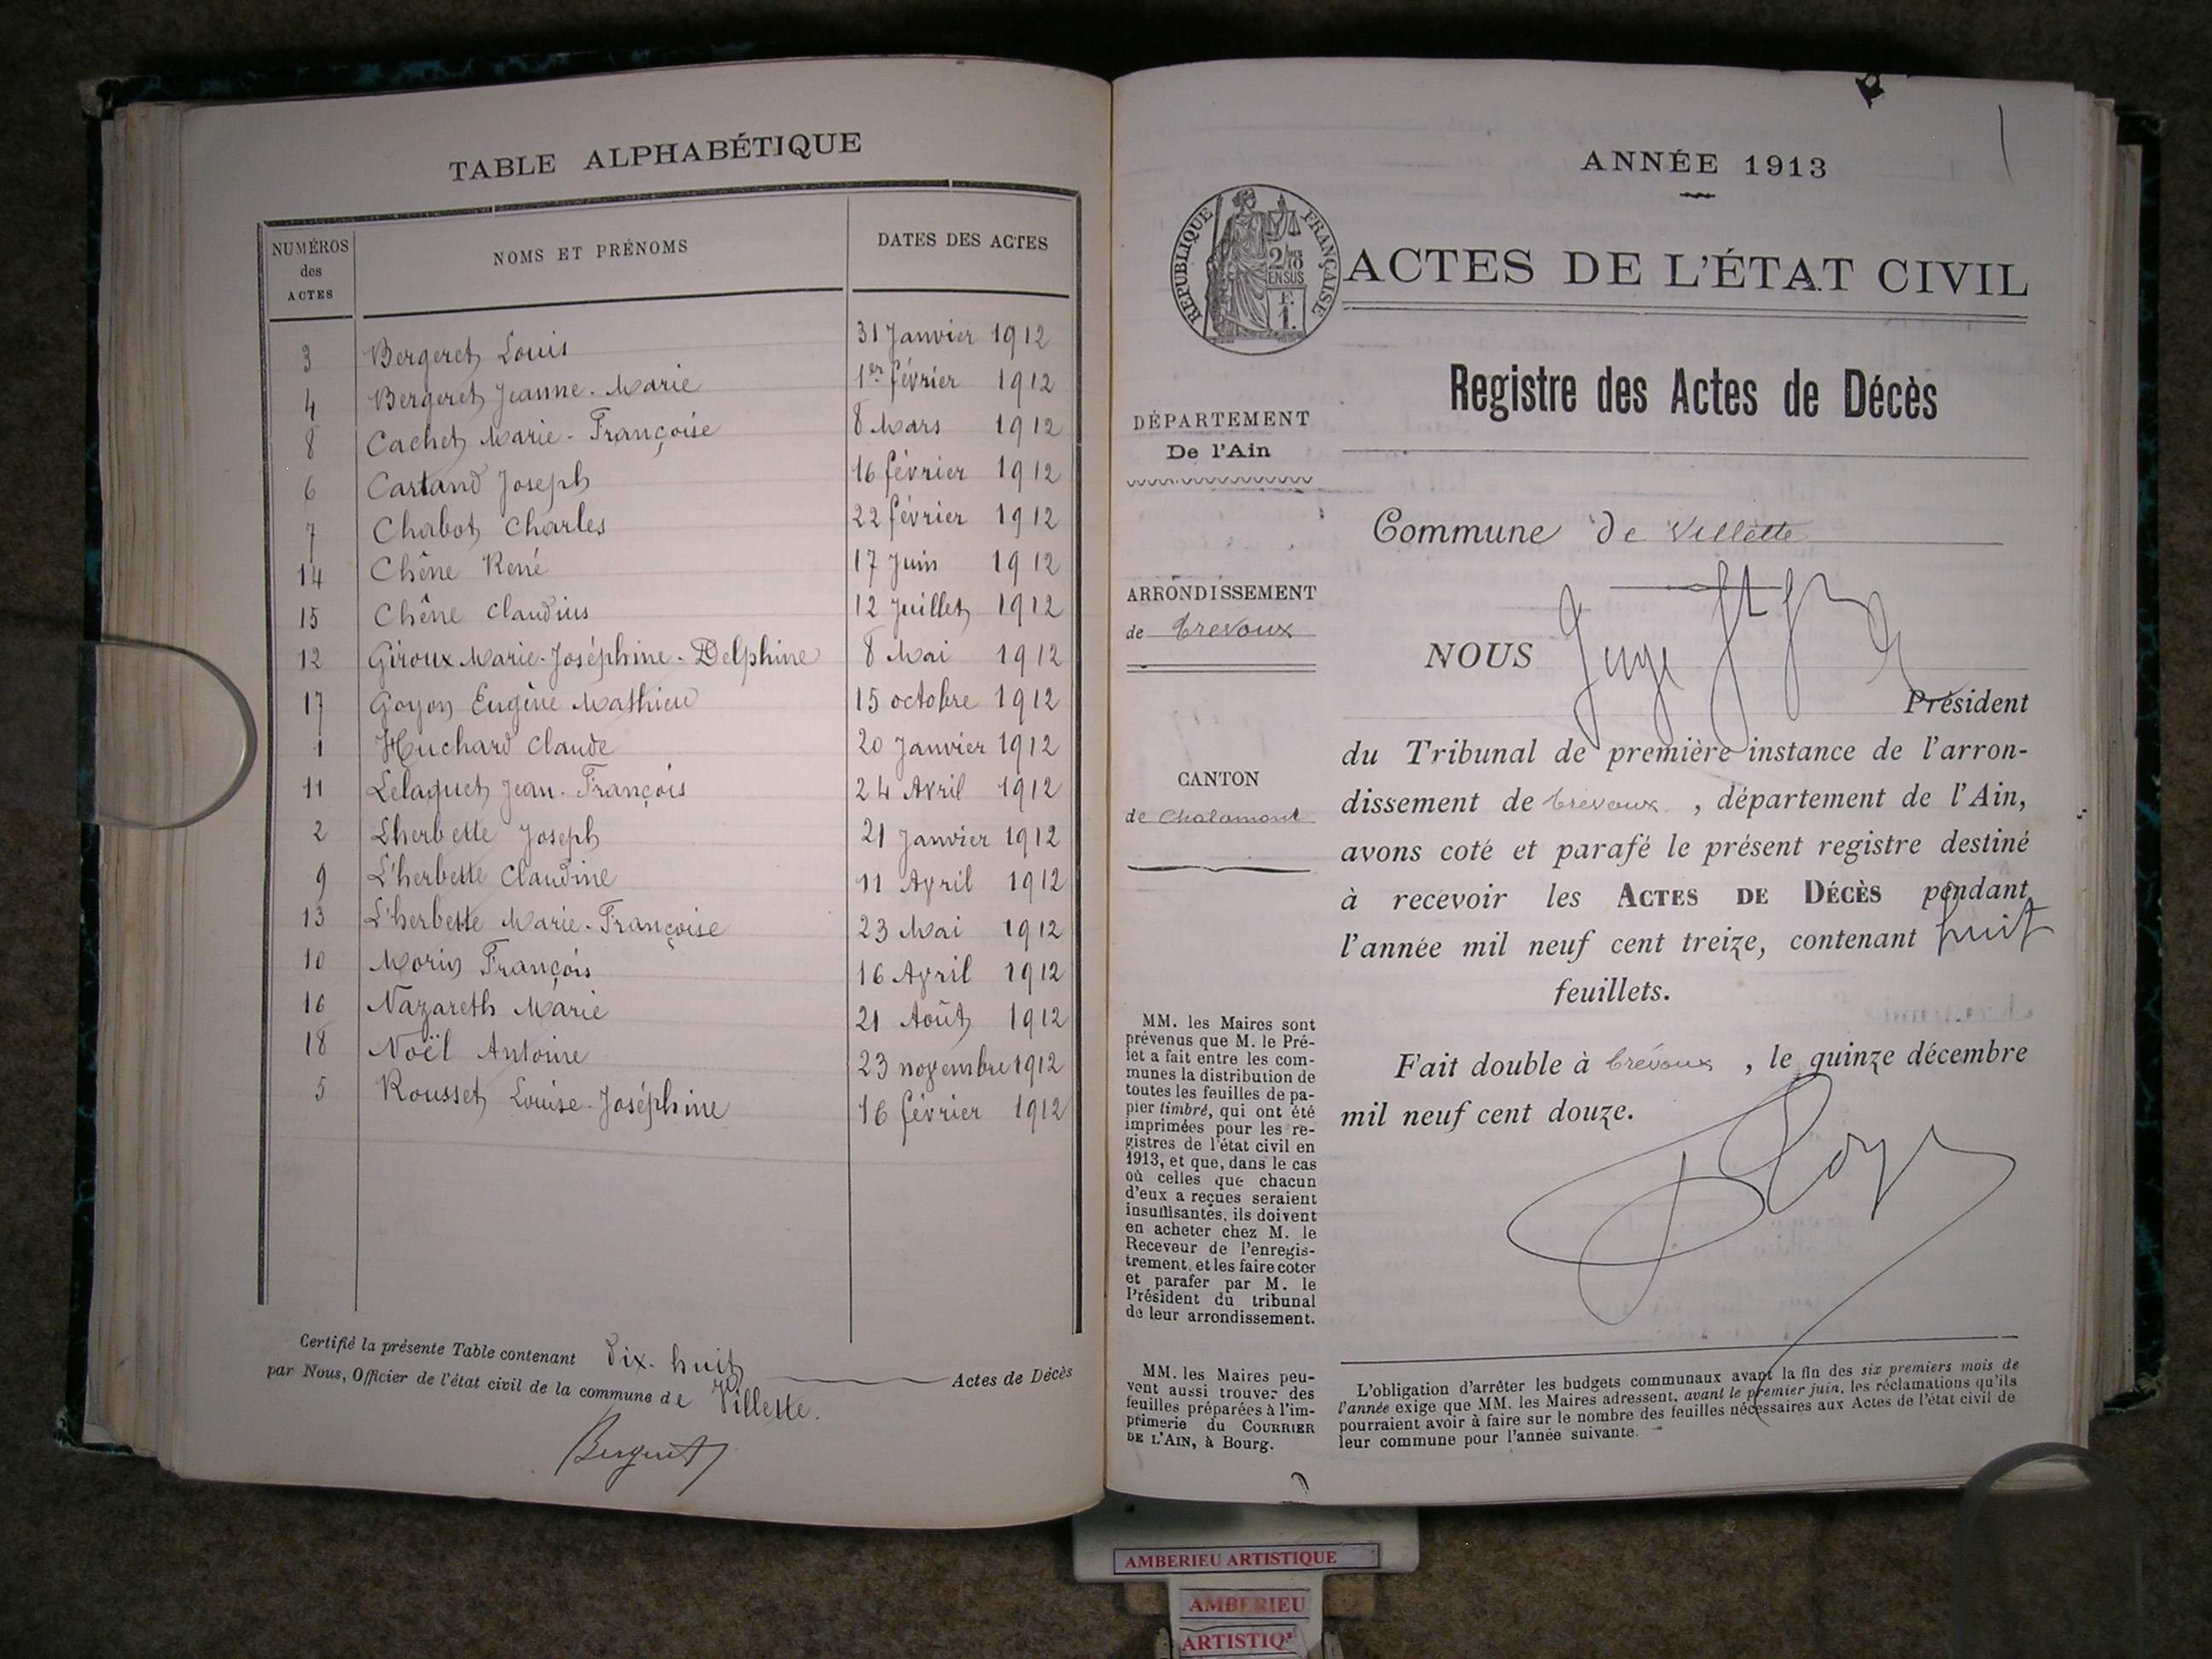 TABLE ALPHABÉTIQUE
NUMÉROS des ACTES NOMS ET PRÉNOMS DATES DES ACTES
3 Bergeret Louis 31 Janvier 1912
4 Bergeret Jeanne-Marie 1er février 1912
8 Cachet Marie-Françoise 8 Mars 1912
6 Cartand Joseph 16 février 1912
7 Chabot Charles 22 février 1912
14 Chêne René 17 Juin 1912
15 Chêne Claudius 12 Juillet 1912
12 Giroux Marie-Joséphine-Delphine 8 Mai 1912
17 Goyon Eugène Mathieu 15 octobre 1912
1 Huchard Claude 20 Janvier 1912
11 Lelaquet Jean-François 24 Avril 1912
2 Lherbette Joseph 21 Janvier 1912
9 L'herbette Claudine 11 Avril 1912
13 L'herbette Marie-Françoise 23 Mai 1912
10 Morin François 16 Avril 1912
16 Nazareth Marie 21 Août 1912
18 Noël Antoine 23 novembre 1912
5 Rousset Louise-Joséphine 16 février 1912
Certifié la présente Table contenant dix-huit Actes de Décès
par Nous, Officier de l'état civil de la commune de Villette.
ANNÉE 1913
RÉPUBLIQUE FRANÇAISE
2/10 EN SUS
F. 1.
ACTES DE L'ÉTAT CIVIL
Registre des Actes de Décès
DÉPARTEMENT
De l'Ain
ARRONDISSEMENT
de Trevoux
CANTON
de Chalamont
MM. les Maires sont
prévenus que M. le Pré-
fet a fait entre les com-
munes la distribution de
toutes les feuilles de pa-
pier timbré, qui ont été
imprimées pour les re-
gistres de l'état civil en
1913, et que, dans le cas
où celles que chacun
d'eux a reçues seraient
insuffisantes, ils doivent
en acheter chez M. le
Receveur de l'enregis-
trement, et les faire coter
et parafer par M. le
Président du tribunal
de leur arrondissement.
MM. les Maires peu-
vent aussi trouver des
feuilles préparées à l'im-
primerie du COURRIER
DE L'AIN, à Bourg.
Commune de Villette
NOUS Juge
Président
du Tribunal de première instance de l'arron-
dissement de Trevoux, département de l'Ain,
avons coté et parafé le présent registre destiné
à recevoir les ACTES DE DÉCÈS pendant
l'année mil neuf cent treize, contenant huit
feuillets.
Fait double à Trévoux, le quinze décembre
mil neuf cent douze.
L'obligation d'arrêter les budgets communaux avant la fin des six premiers mois de
l'année exige que MM. les Maires adressent, avant le premier juin, les réclamations qu'ils
pourraient avoir à faire sur le nombre des feuilles nécessaires aux Actes de l'état civil de
leur commune pour l'année suivante.
AMBERIEU ARTISTIQUE
AMBERIEU
ARTISTIQ